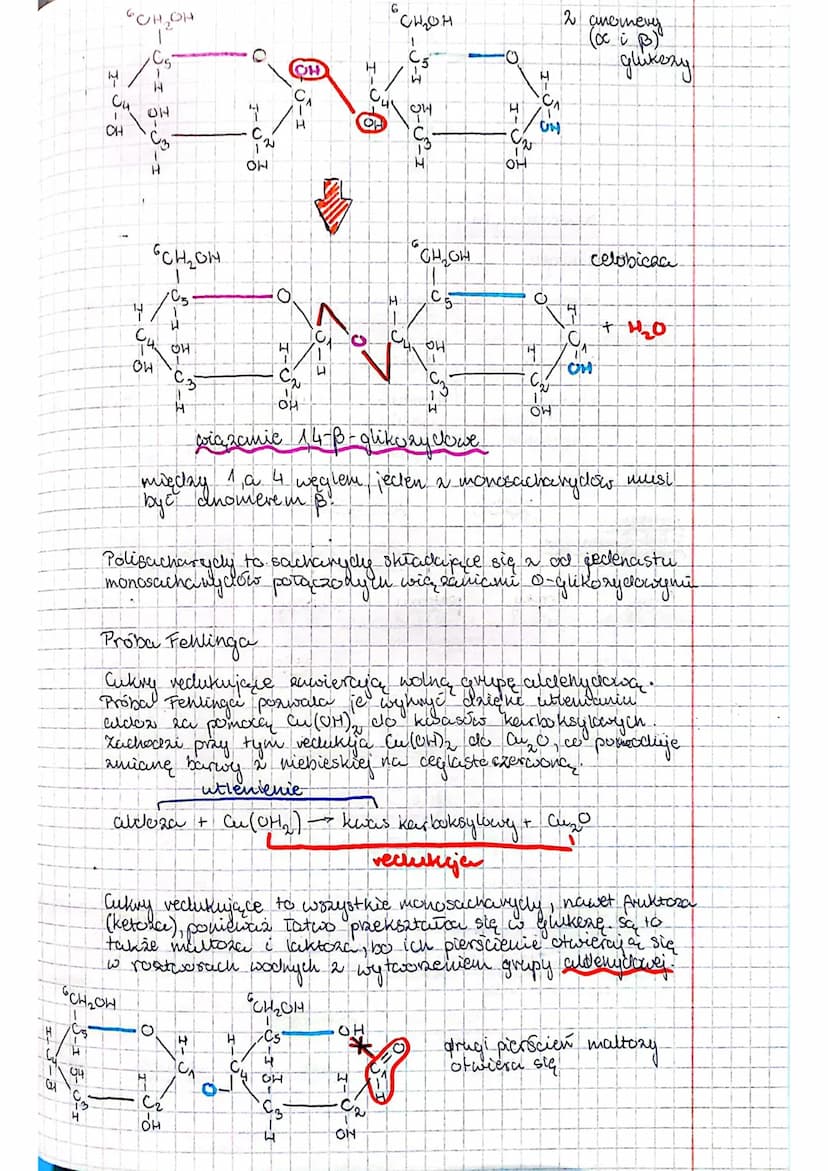 ⁶CH₂OH ⁶CH₂OH 2 anomery
(α i β)
glukozy
C₅ O OH C₅ O
H H H H H
C₄ OH C₁ C₄ OH C₁
OH C₃ H C₂ H OH C₃ H C₂ OH
H OH H OH
⁶CH₂OH ⁶CH₂OH celobioza
C₅ O C₅ O
H H H H
C₄ OH H C₁ O C₄ OH H C₁ + H₂O
OH C₃ C₂ H C₃ C₂ OH
H OH H OH
wiązanie 1,4-β-glikozydowe
między 1, a 4 węglem, jeden z monosacharydów musi
być anomerem β.
Polisacharydy to sacharydy składające się z od jedenastu
monosacharydów połączonych wiązaniami O-glikozydowymi
Próba Fehlinga
Cukry redukujące zawierają wolną grupę aldehydową.
Próba Fehlinga pozwala je wykryć dzięki utlenianiu
aldoz za pomocą Cu(OH)₂ do kwasów karboksylowych.
Zachodzi przy tym redukcja Cu(OH)₂ do Cu₂O, co powoduje
zmianę barwy z niebieskiej na ceglastoczerwoną.
utlenienie
aldoza + Cu(OH₂) → kwas karboksylowy + Cu₂O
redukcja
Cukry redukujące to wszystkie monosacharydy, nawet fruktoza
(ketoza), ponieważ łatwo przekształca się w glukozę. Są to
także maltoza i laktoza, bo ich pierścienie otwierają się
w roztworach wodnych z wytworzeniem grupy aldehydowej.
⁶CH₂OH ⁶CH₂OH
H C₅ O H H C₅ OH
C₄ H C₁ C₄ H C₁ O
OH OH H O OH H H
C₃ C₂ C₃ C₂
H OH H OH
drugi pierścień maltozy
otwiera się